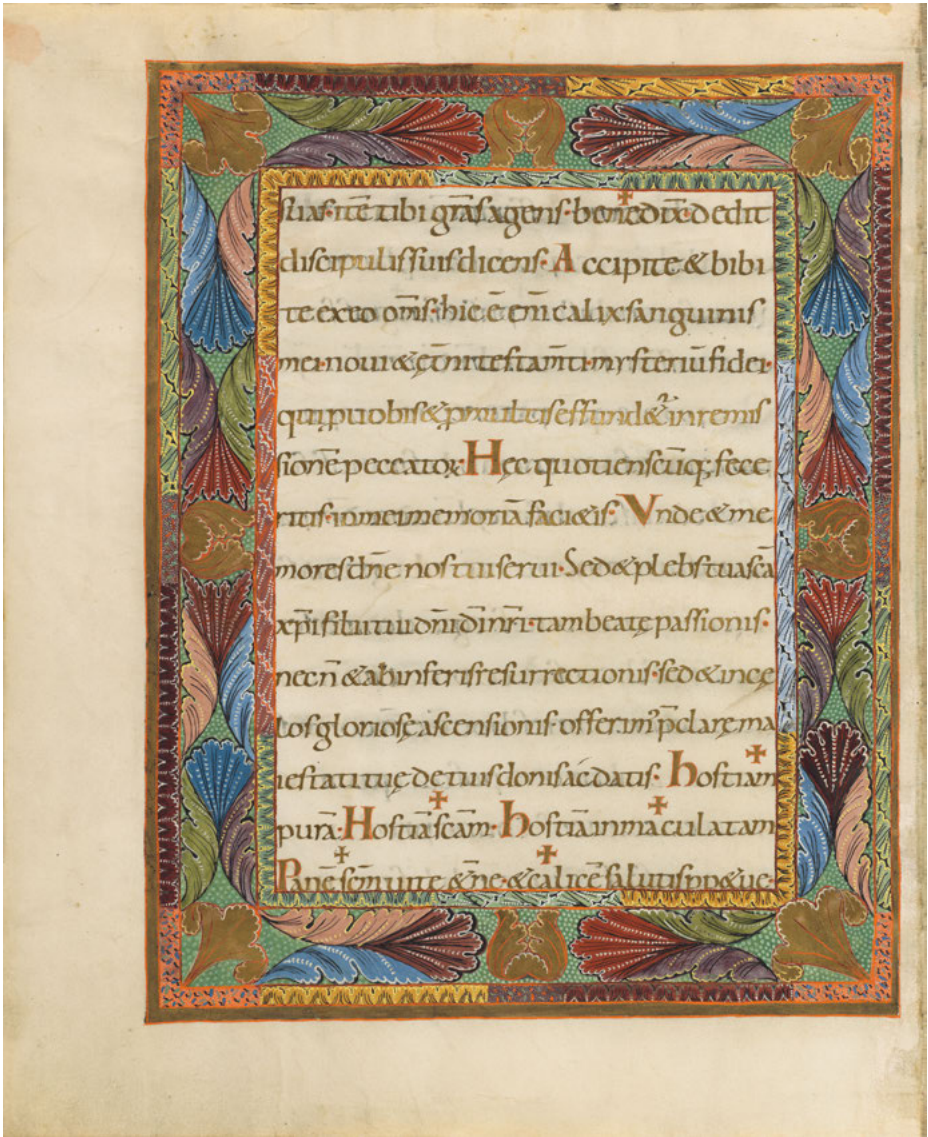 suas· itē tibi gr̄as agens· bened̄ dēdit
discipulis suis dicens· Accipite & bibi
te ex eo om̄s· hic ē em̄ calix sanguinis
mei· noui & ęt̄ni testam̄ti· mysteriū fidei·
qui ꝓ uobis & ꝓ multis effundet᷑ in remis
sionē peccatoꝝ· Hęc quotienscūq; fece
ritis· in mei memoriā faci&is· Vnde & me
mores dn̄e nos tui serui· Sed & plebs tua sc̄a
xp̄i filii tui dn̄i dī nr̄i· tam beatę passionis·
necn̄ & ab inferis resurrectionis· sed & in cę
los glorios̨e ascensionis· offerim᷒ p̄clarę ma
iestati tuę de tuis donis ac datis· hostiam
purā· Hostiā sc̄am· hostiā inmaculatam
Panē sc̄m uite &n̄ę· & calicē salutis pp&uę·